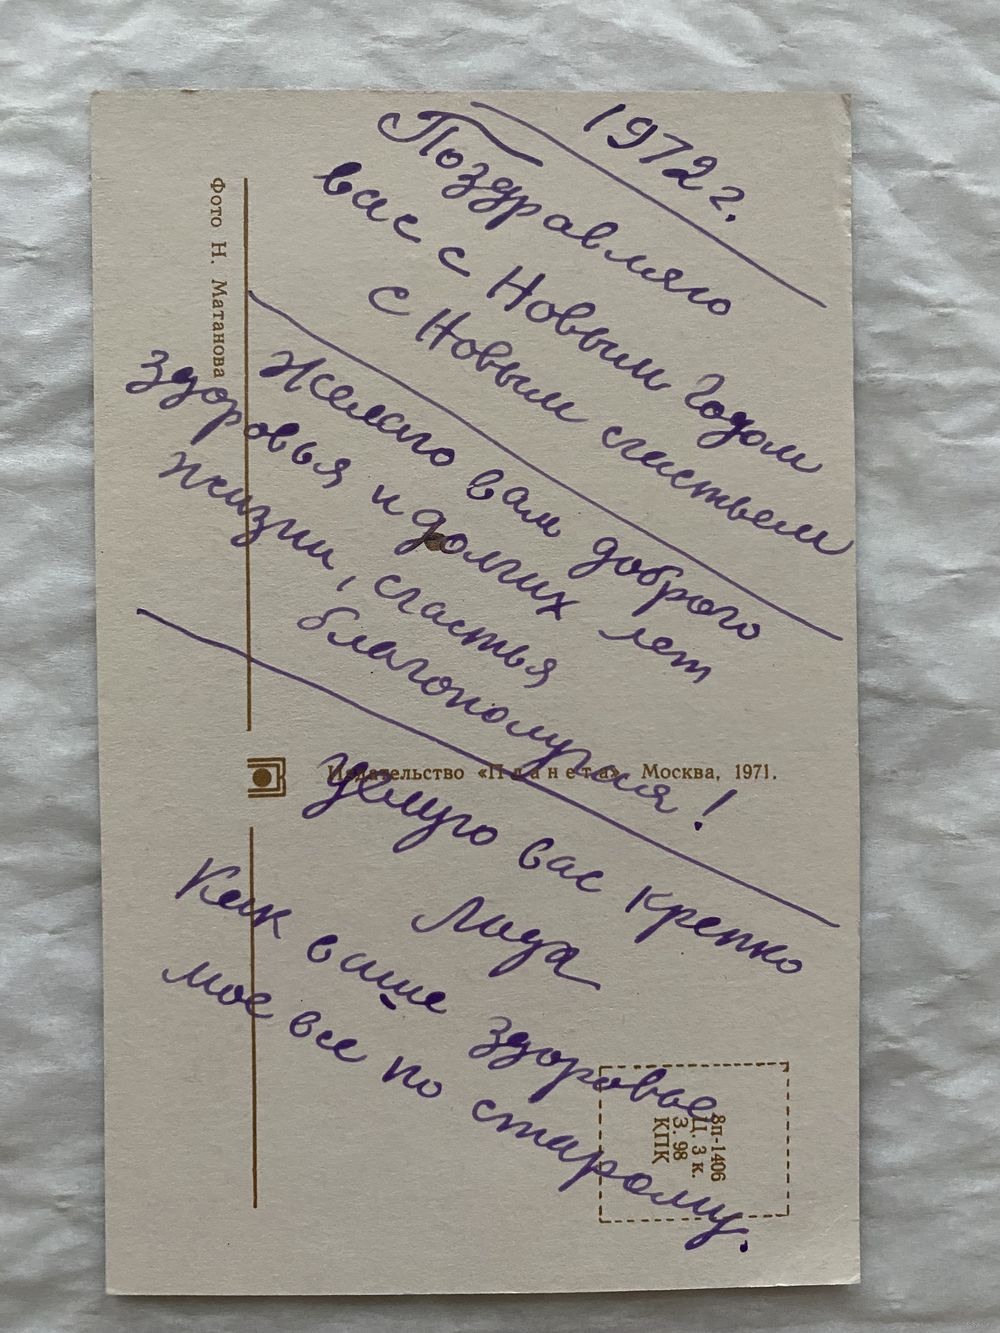 1972 г.
Поздравляю
вас с Новым Годом
с Новым счастьем
Желаю вам доброго
здоровья и долгих лет
жизни, счастья
благополучия!
Целую вас крепко
Лида
Как ваше здоровье
мое все по старому.
Фото Н. Матанова
Издательство «Планета». Москва, 1971.
8п-1406
Ц. 3 к.
З. 98
КПК